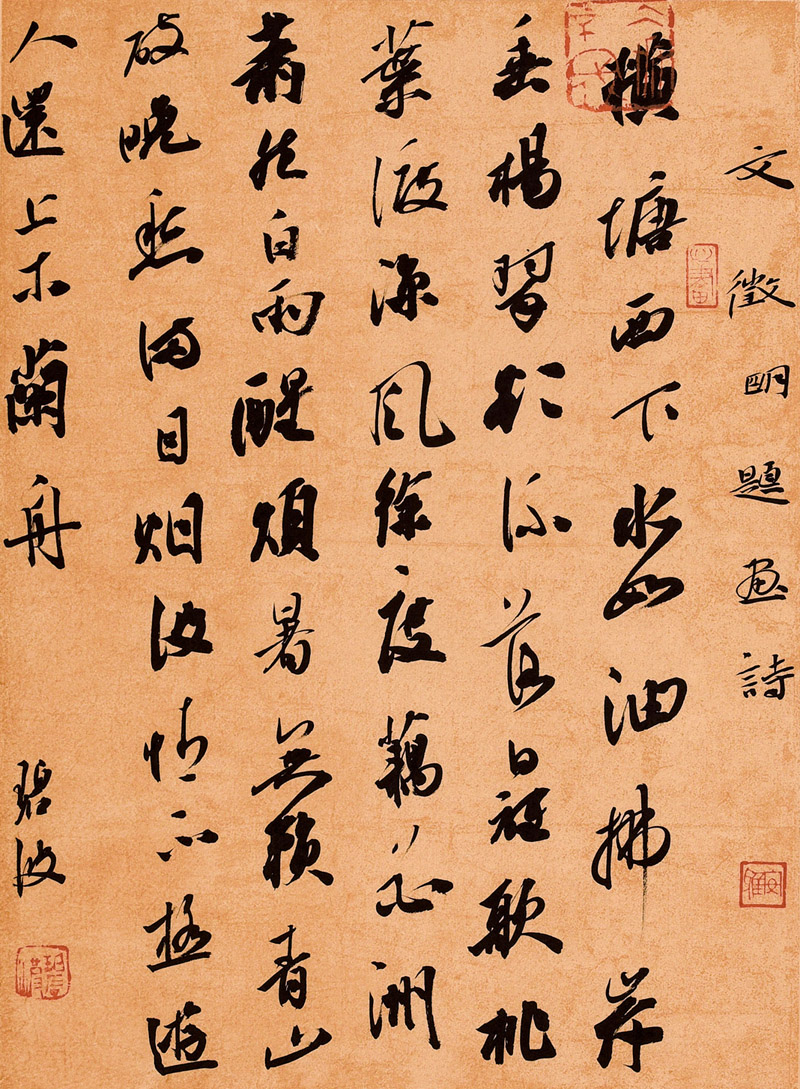 文徵明題画詩
橫塘西下水如油拂岸
垂楊翠欲流落日誰歌桃
葉渡涼風徐度藕花洲
蕭然白雨醒煩暑無賴青山
破晚愁滿目烟波情不極遊
人還上木蘭舟
碧波